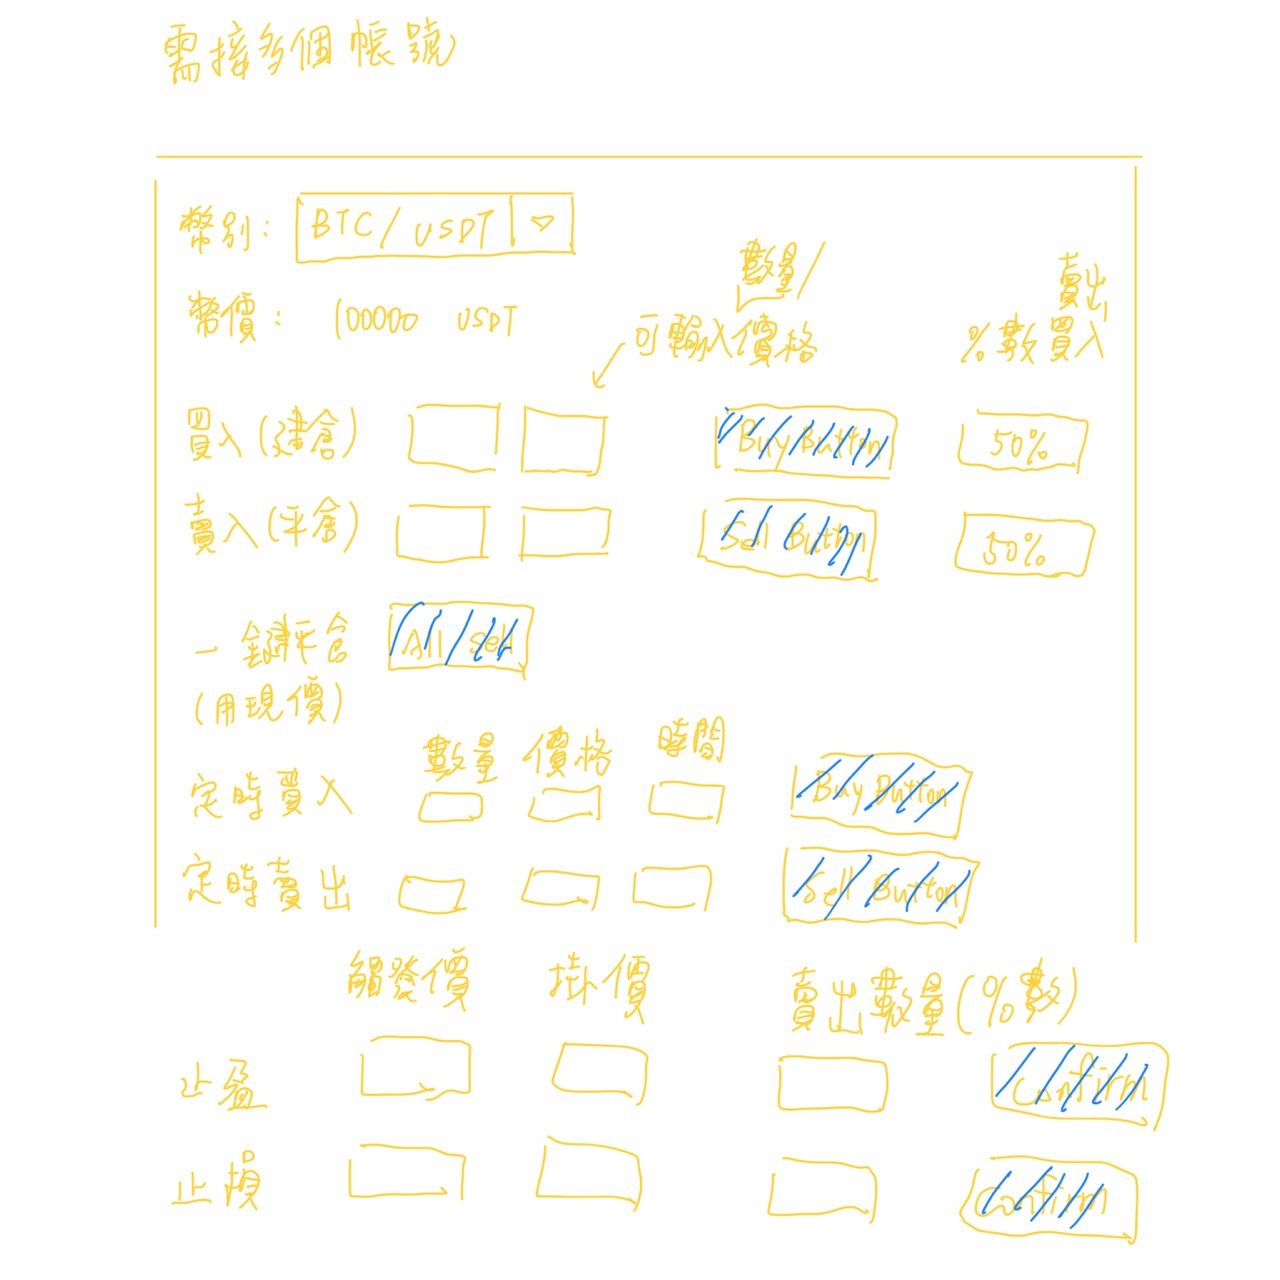 需接多個帳號
幣別: BTC/USDT
幣價: 100000 USDT
數量/
可輸入價格
賣出
%數買入
買入(建倉) Buy Button 50%
賣入(平倉) Sell Button 50%
一鍵平倉 All sell
(用現價)
數量 價格 時間
定時買入 Buy Button
定時賣出 Sell Button
觸發價 掛價 賣出數量(%數)
止盈 Confirm
止損 Confirm